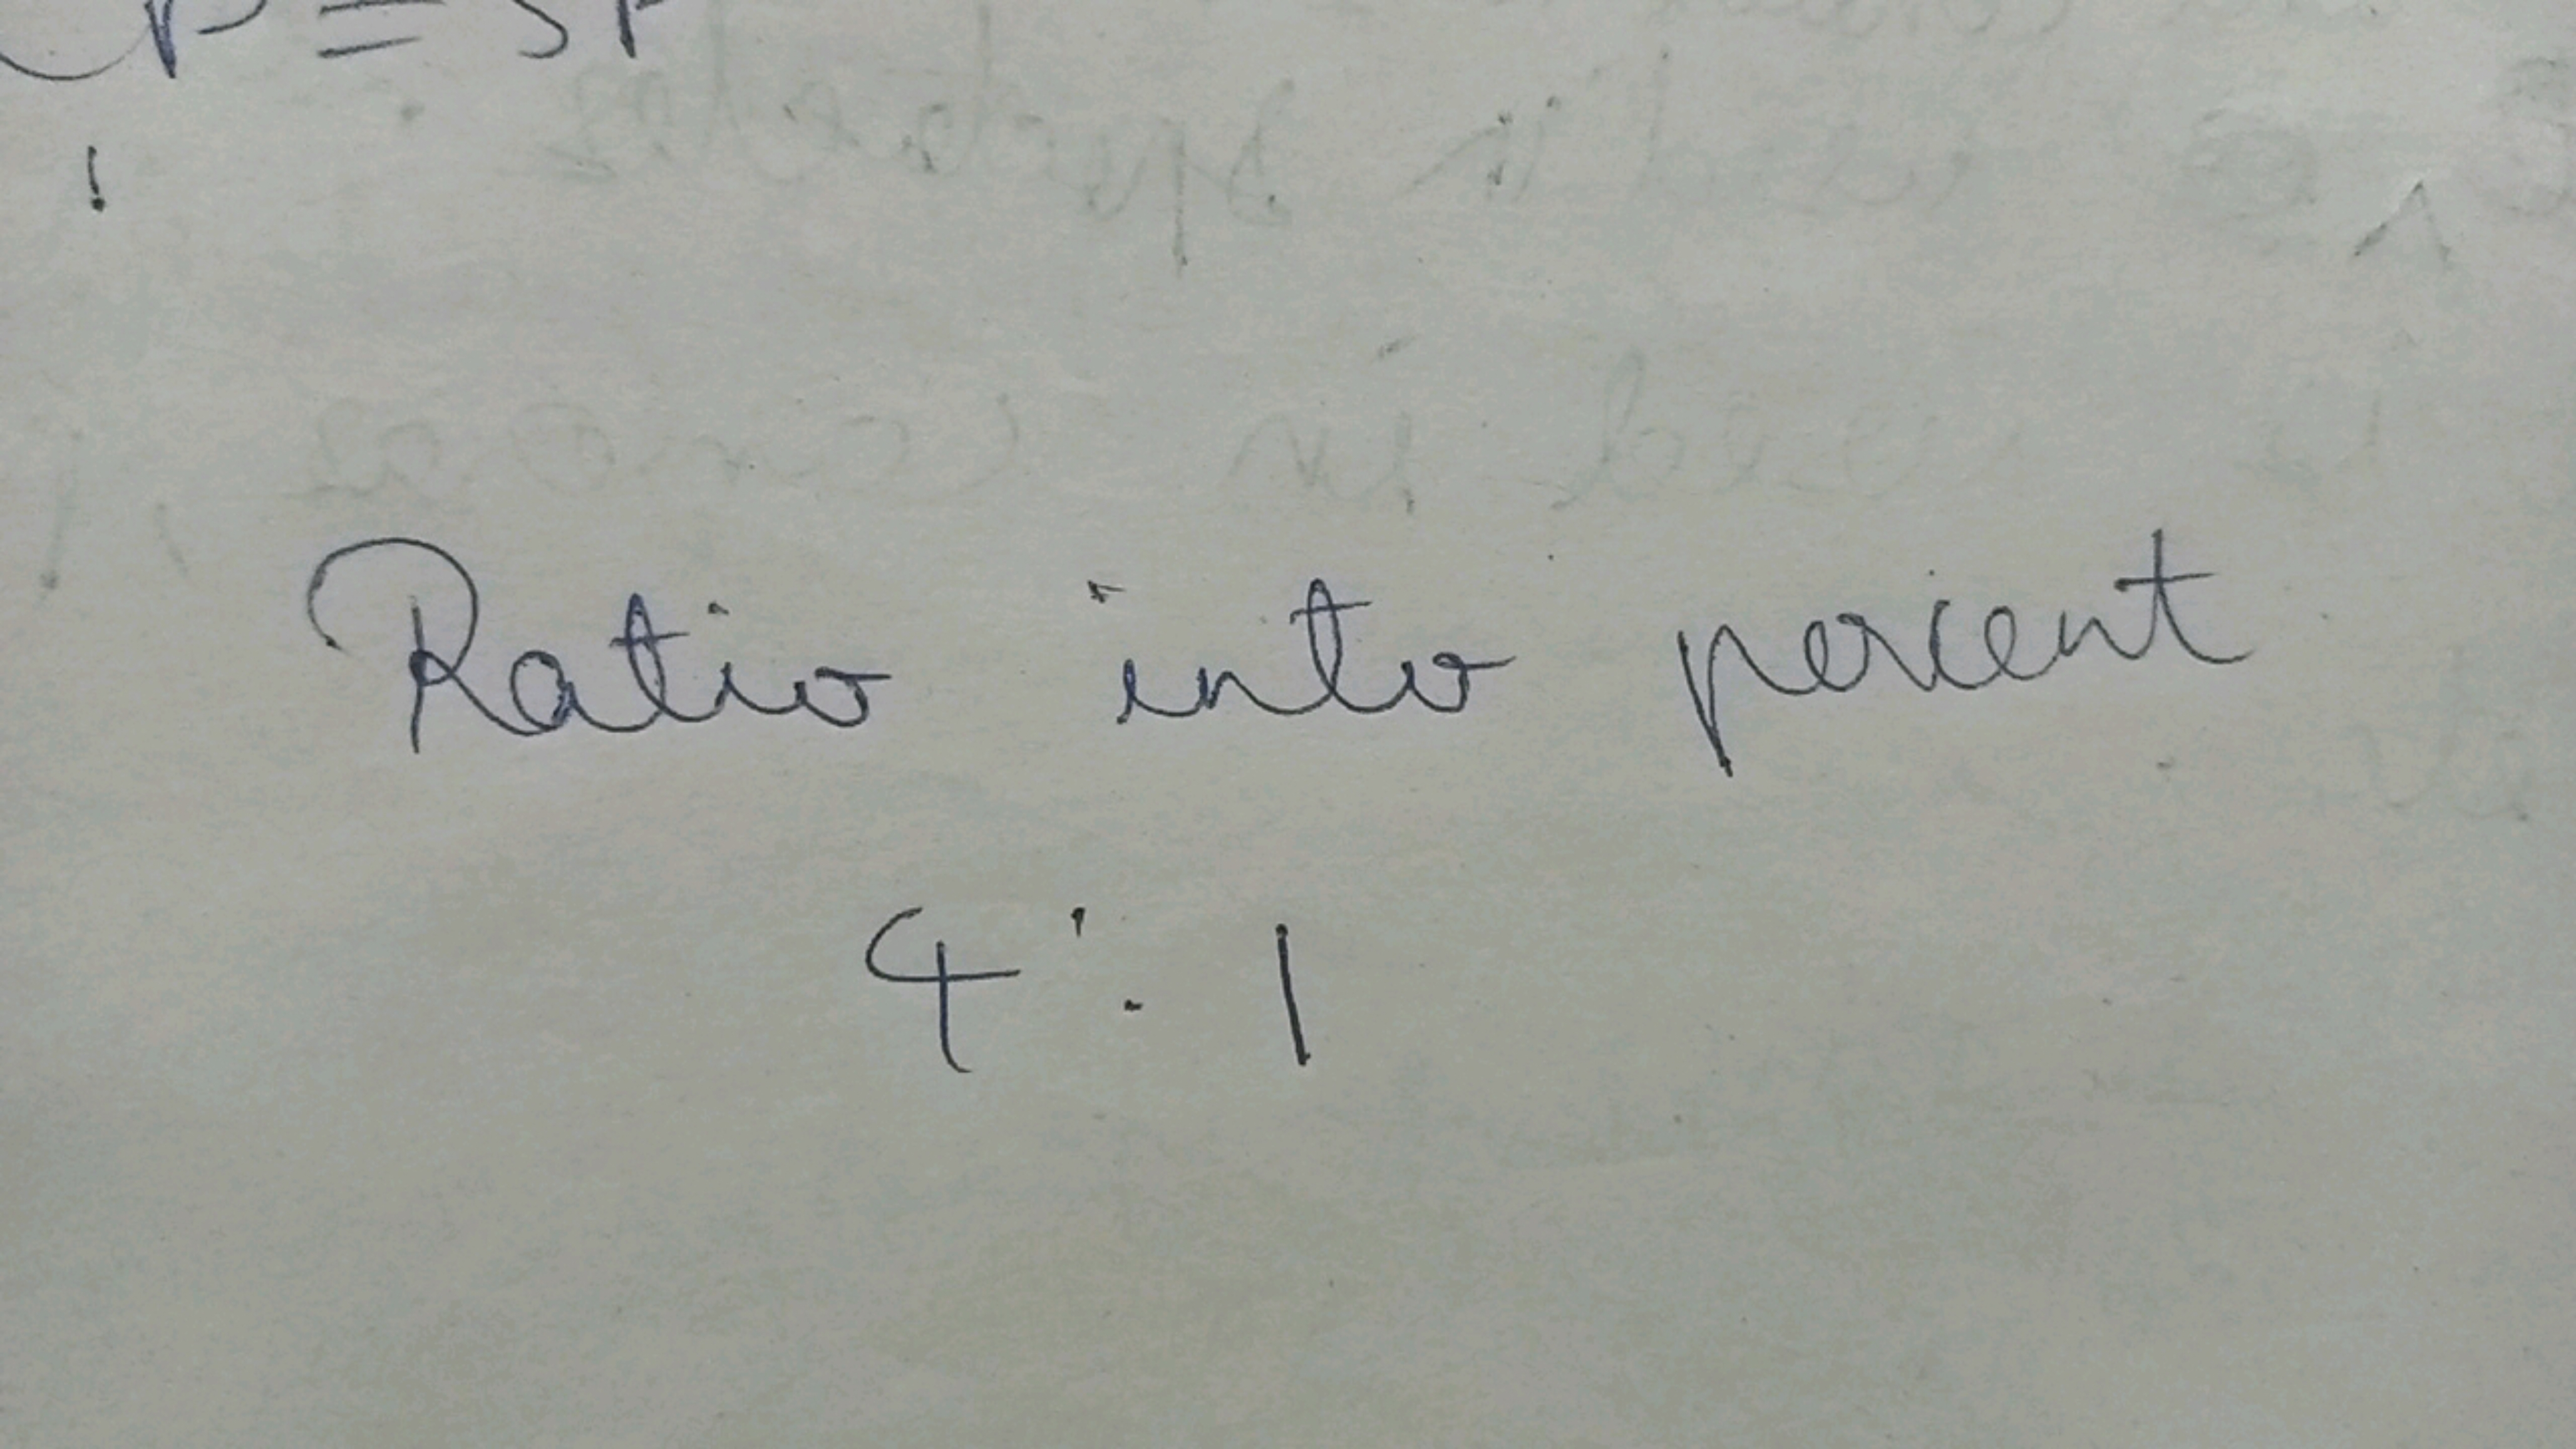 CP = SP
Ratio into percent
4 : 1